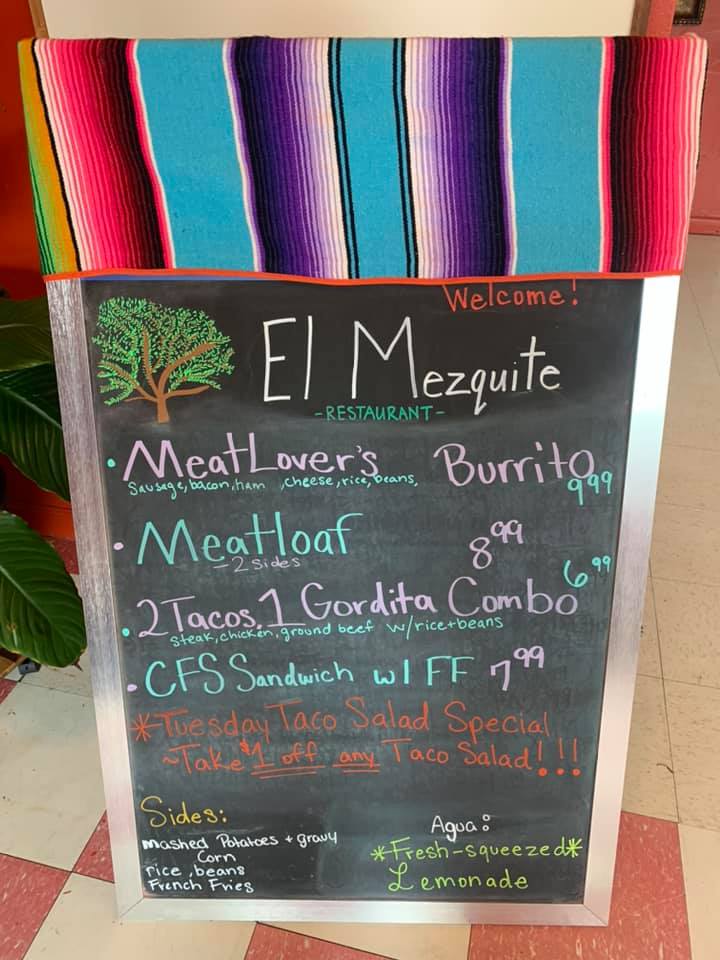 Welcome!
El Mezquite
-RESTAURANT-
• MeatLover's Burrito 9.99
Sausage, bacon, ham ,cheese, rice, beans,
• Meatloaf 8.99
-2 sides
• 2 Tacos, 1 Gordita Combo 6.99
steak, chicken, ground beef w/rice+beans
• CFS Sandwich w/ FF 7.99
*Tuesday Taco Salad Special
~Take $1 off any Taco Salad!!!
Sides:
mashed Potatoes + gravy
Corn
rice, beans
French Fries
Agua:
*Fresh-squeezed*
Lemonade